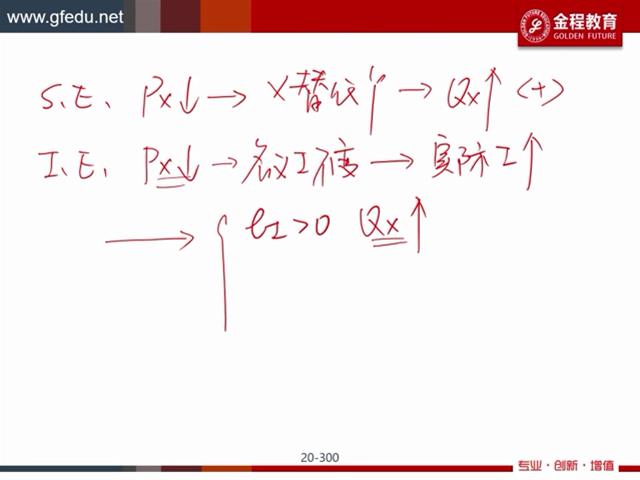 www.gfedu.net
金程教育
GOLDEN FUTURE
S.E. Px↓ → X替代个 → Qx↑ <+>
I.E. Px↓ → 名义I不变 → 实际I↑
→ { eI>0 Qx↑
20-300
专业·创新·增值